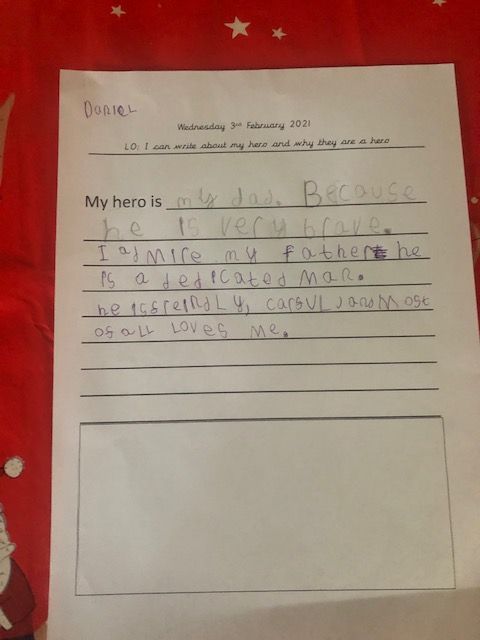 Daniel
Wednesday 3rd February 2021
LO: I can write about my hero and why they are a hero
My hero is my dad. Because
he is very brave.
I admire my father he
is a dedicated man.
he issreindly, carsul, and most
os all loves me.